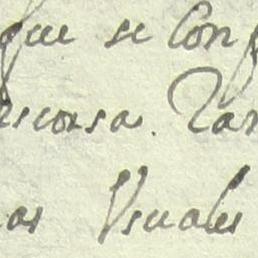 que se Con
scorsa. Tan
as Vsuales